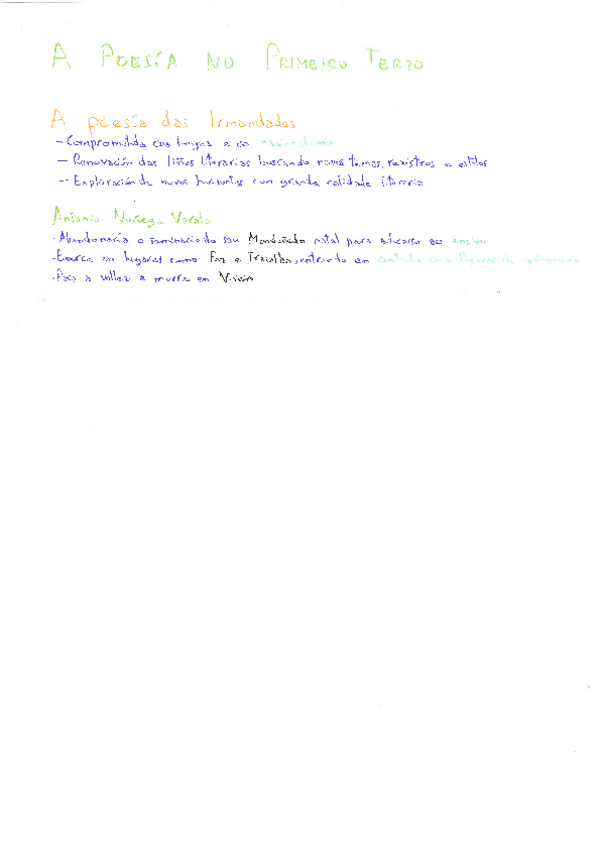 A POESÍA NO PRIMEIRO TERZO
A poesía das Irmandades
- Comprometida coa lingua e co nacionalismo
- Renovación das liñas literarias buscando novos temas, rexistros e estilos
- Exploración de novos horizontes cun grande calidade literaria
Antonio Noriega Varela
· Abandonaría o seminario do seu Mondoñedo natal para adicarse ao ensino
· Exerce en lugares como Foz e Trasalba, entrando en contacto coas figuras do
· Pasa a vellez e morre en Viveiro